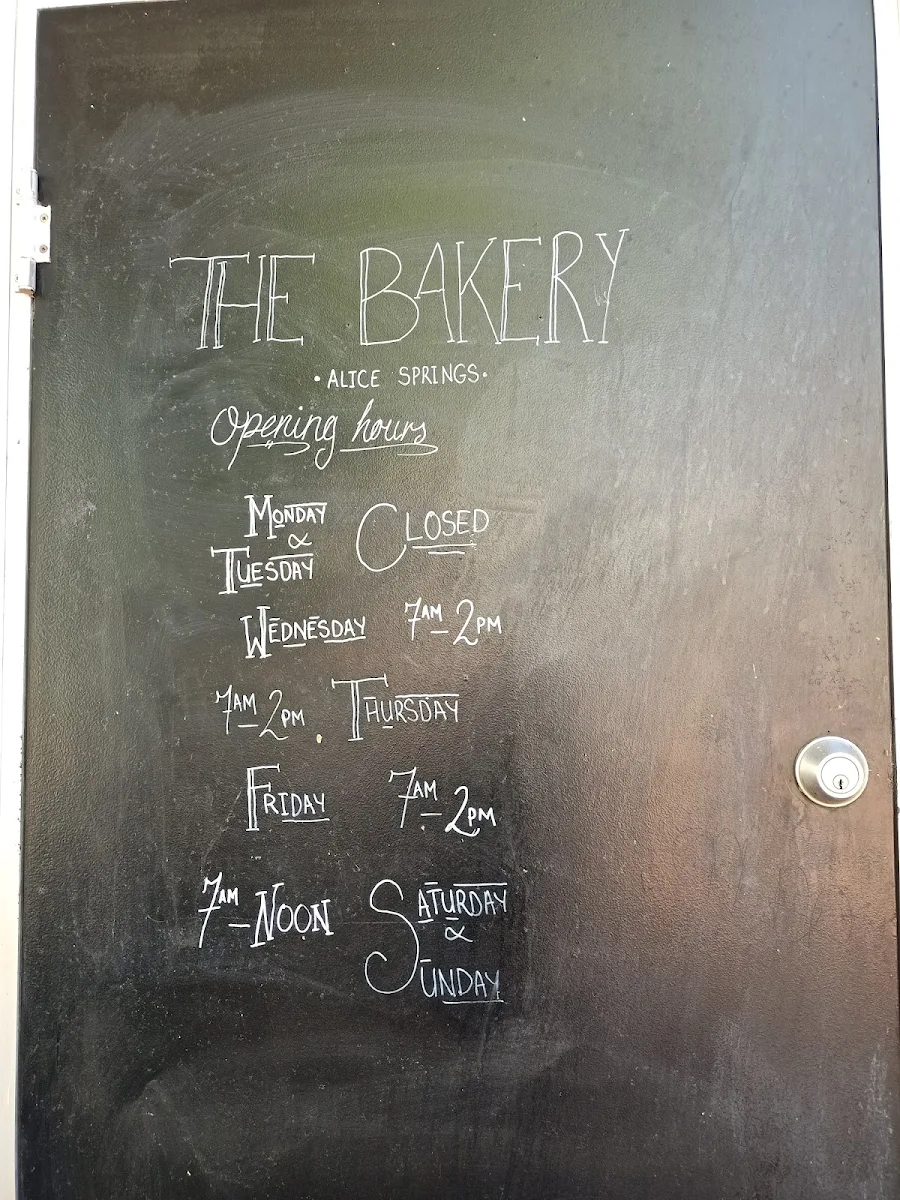 THE BAKERY
• ALICE SPRINGS •
Opening hours
MONDAY
& CLOSED
TUESDAY
WEDNESDAY 7AM - 2PM
7AM - 2PM THURSDAY
FRIDAY 7AM - 2PM
7AM - NOON SATURDAY
&
SUNDAY